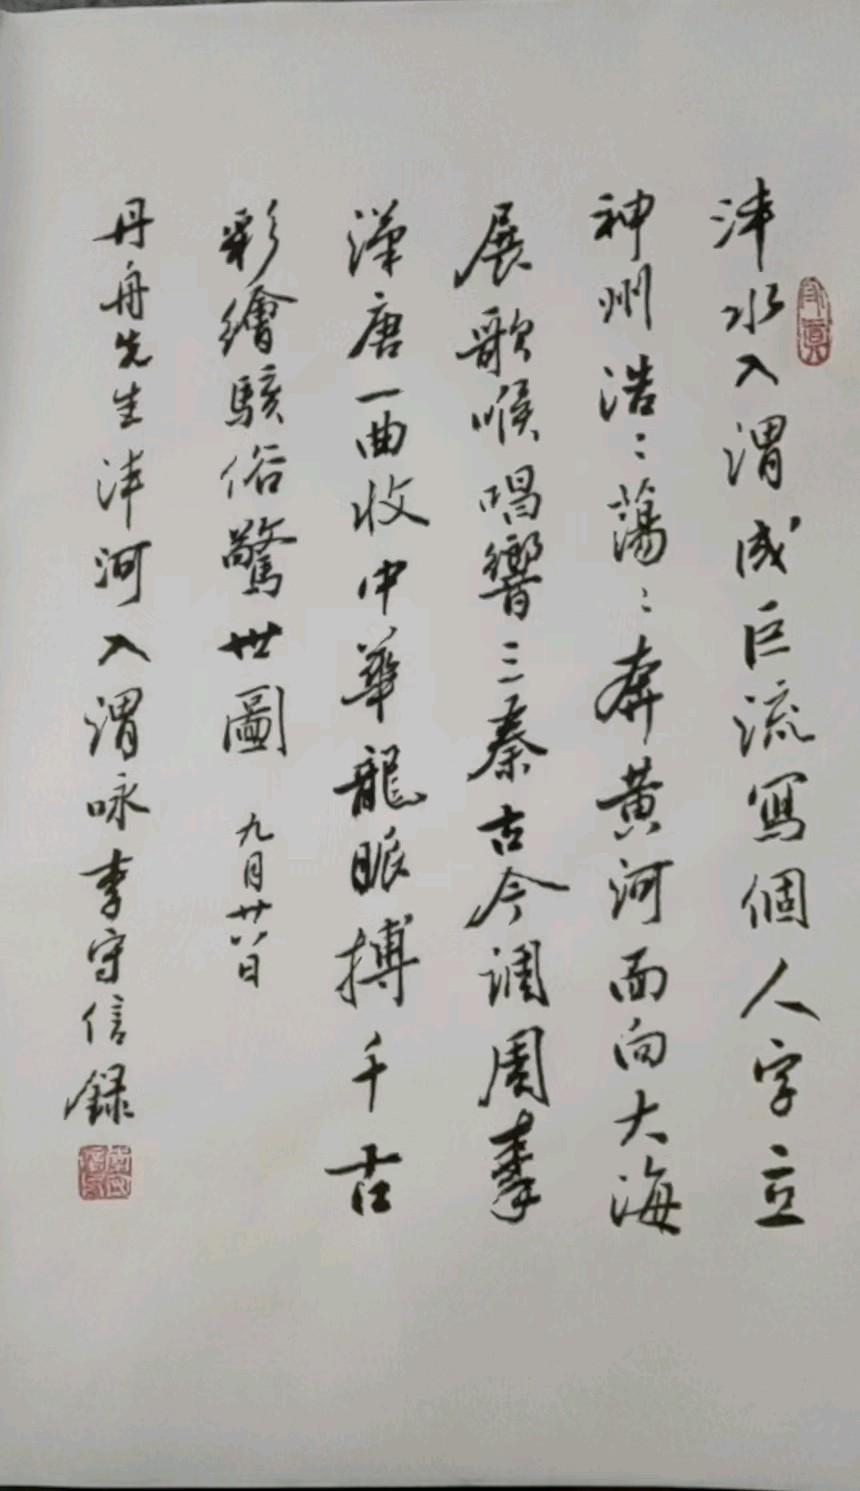 沣水入渭成巨流寫個人字立
神州浩：蕩：奔黄河面向大海
展歌喉唱響三秦古今调周秦
漢唐一曲收中華龍脈搏千古
彩繪駭俗驚世圖 九月廿八日
丹舟先生沣河入渭咏李守信録